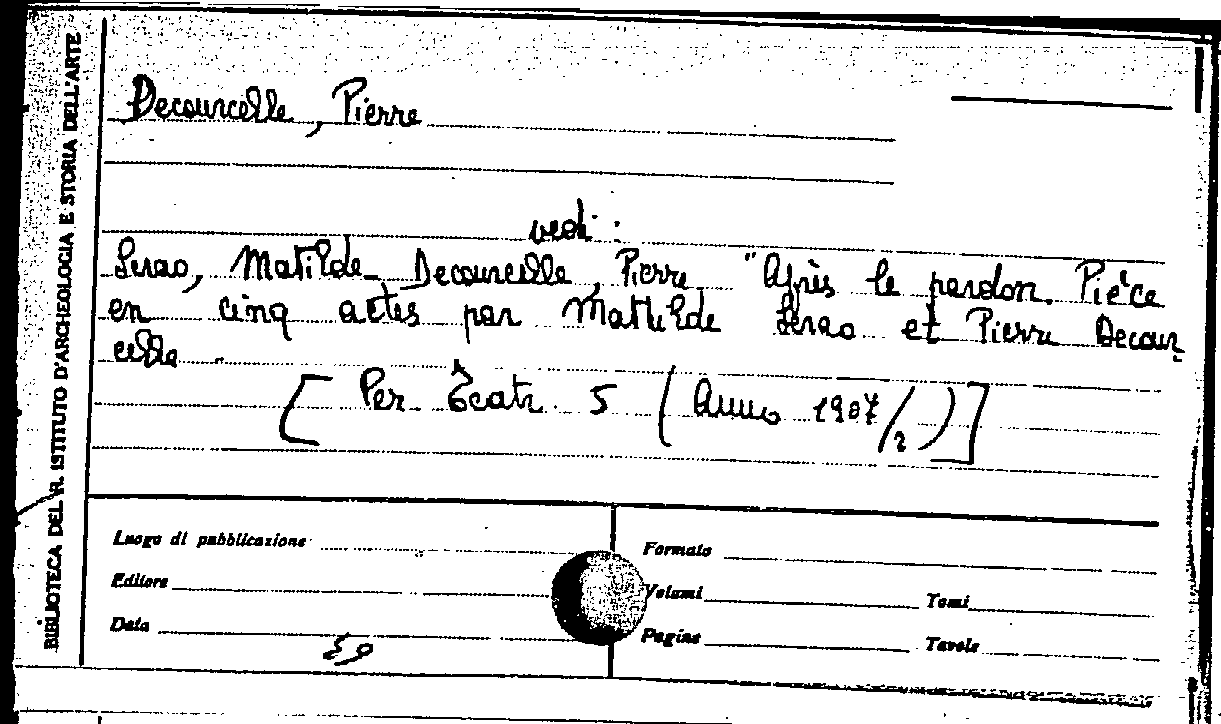 BIBLIOTECA DEL R. ISTITUTO D'ARCHEOLOGIA E STORIA DELL'ARTE
Decourcelle, Pierre
vedi:
Serao, Matilde - Decourcelle, Pierre "Après le pardon. Pièce
en cinq actes par Mathilde Serao et Pierre Decour-
celle"
[Per Teatr. 5 (Anno 1907/2)]
Luogo di pubblicazione
Formato
Editore
Volumi
Tomi
Data
Pagine
Tavole